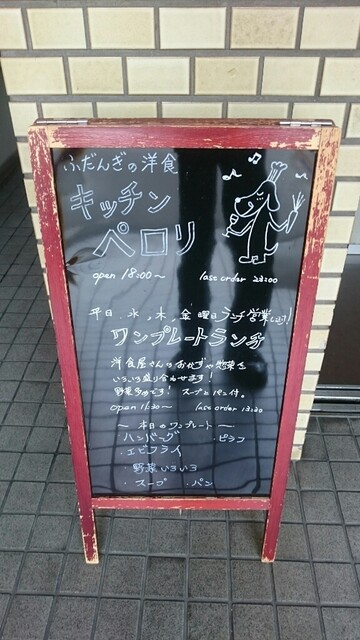 ふだんぎの洋食
キッチン
ペロリ
open 18:00〜 last order 23:00
平日、水、木、金曜日ランチ営業します!
ワンプレートランチ
洋食屋さんのおかずや惣菜を
いろいろ盛り合わせます!
野菜多めです! スープとパン付。
open 11:30〜 last order 13:30
〜本日のワンプレート〜
ハンバーグ ・ピラフ
・エビフライ
野菜いろいろ
・スープ ・パン